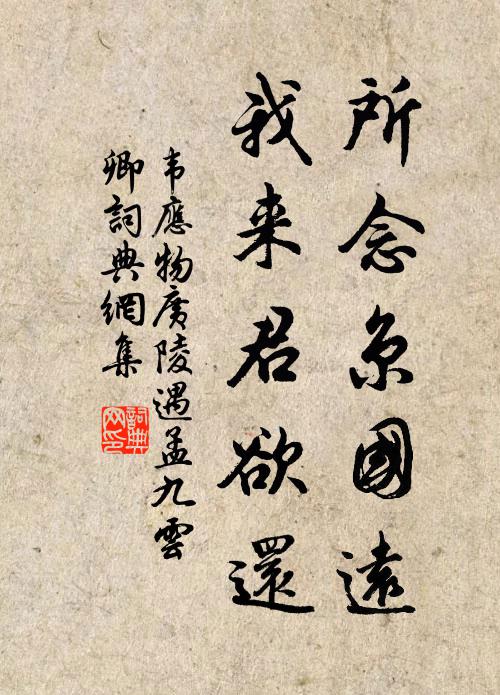 所念京國遠
我来君欲還
韦應物廣陵遇孟九雲
卿詞典網集
詞典網印